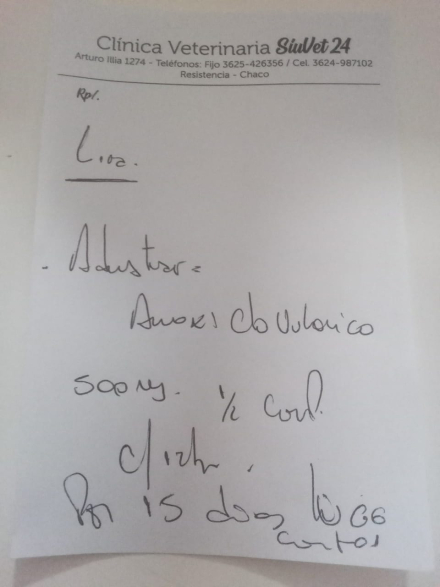 Clínica Veterinaria SiuVet 24
Arturo Illia 1274 - Teléfonos: Fijo 3625-426356 / Cel. 3624-987102
Resistencia - Chaco
Rp/.
- Adustrar =
Amoxi Clavulanico
500 mg. 1/2 Comp.
c/12h.
Por 15 dias